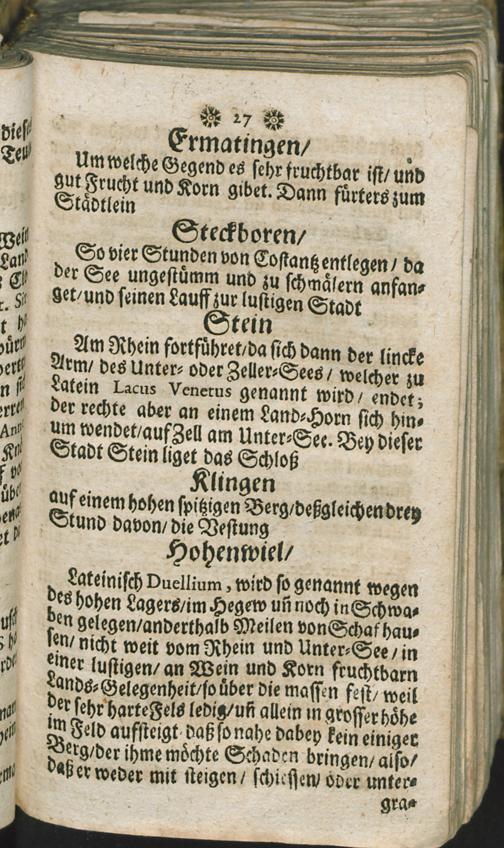 27
Ermatingen/
Um welche Gegend es sehr fruchtbar ist/ und
gut Frucht und Korn gibet. Dann fürters zum
Städtlein
Steckboren/
So vier Stunden von Costantz entlegen/ da
der See ungestümm und zu schmälern anfan-
get/ und seinen Lauff zur lustigen Stadt
Stein
Am Rhein fortführet/ da sich dann der lincke
Arm/ des Unter- oder Zeller-Sees/ welcher zu
Latein Lacus Venetus genannt wird/ endet;
der rechte aber an einem Land-Horn sich hin-
um wendet/ auf Zell am Unter-See. Bey dieser
Stadt Stein liget das Schloß
Klingen
auf einem hohen spitzigen Berg/ deßgleichen drey
Stund davon/ die Vestung
Hohenwiel/
Lateinisch Duellium, wird so genannt wegen
des hohen Lagers/ im Hegew uñ noch in Schwa-
ben gelegen/ anderthalb Meilen von Schafhau-
sen/ nicht weit vom Rhein und Unter-See/ in
einer lustigen/ an Wein und Korn fruchtbarn
Lands-Gelegenheit/ so über die massen fest/ weil
der sehr harte Fels ledig/ uñ allein in grosser höhe
im Feld aufsteigt daß so nahe dabey kein einiger
Berg/ der ihme möchte Schaden bringen/ also/
daß er weder mit steigen/ schiessen/ oder unter-
gra-